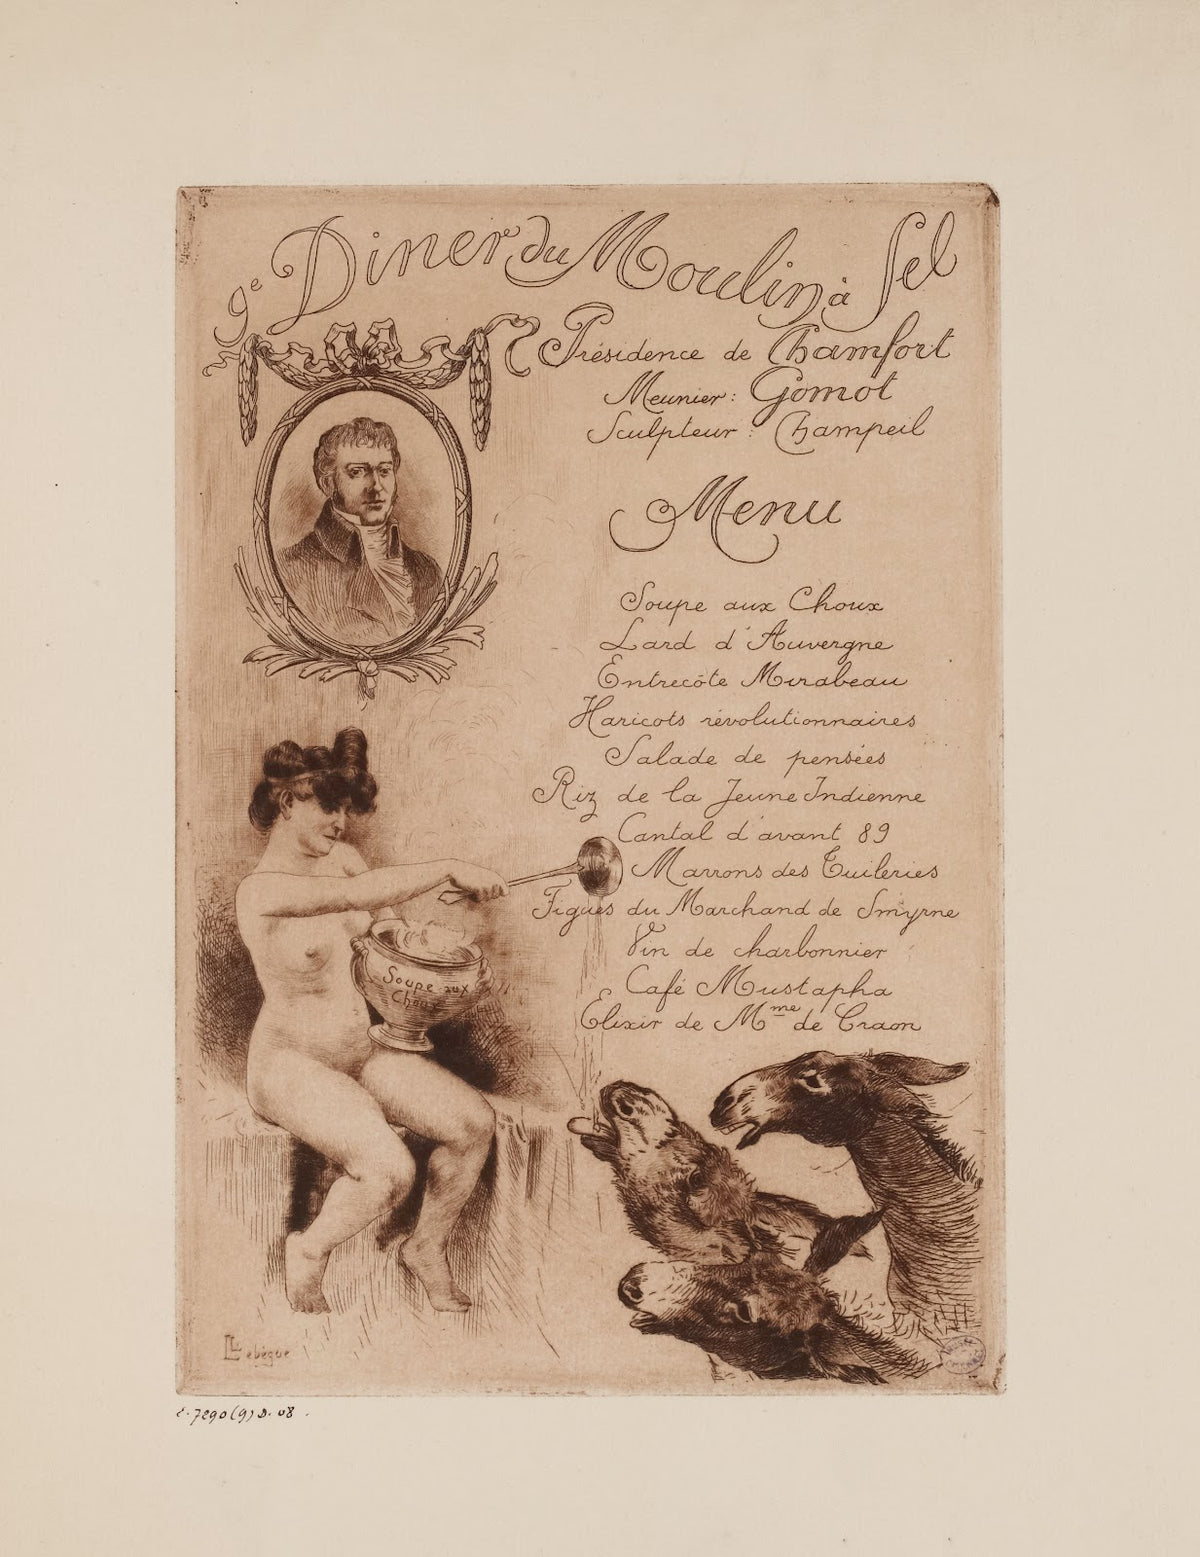 9e Diner du Moulin à Sel
Présidence de Chamfort
Meunier: Gomot
Sculpteur: Champeil
Menu
Soupe aux Choux
Lard d'Auvergne
Entrecôte Mirabeau
Haricots révolutionnaires
Salade de pensées
Riz de la Jeune Indienne
Cantal d'avant 89
Marrons des Tuileries
Figues du Marchand de Smyrne
Vin de charbonnier
Café Mustapha
Elixir de Mme de Craon
Soupe aux
Choux
L Lebègue
E.7290(9) D.08.